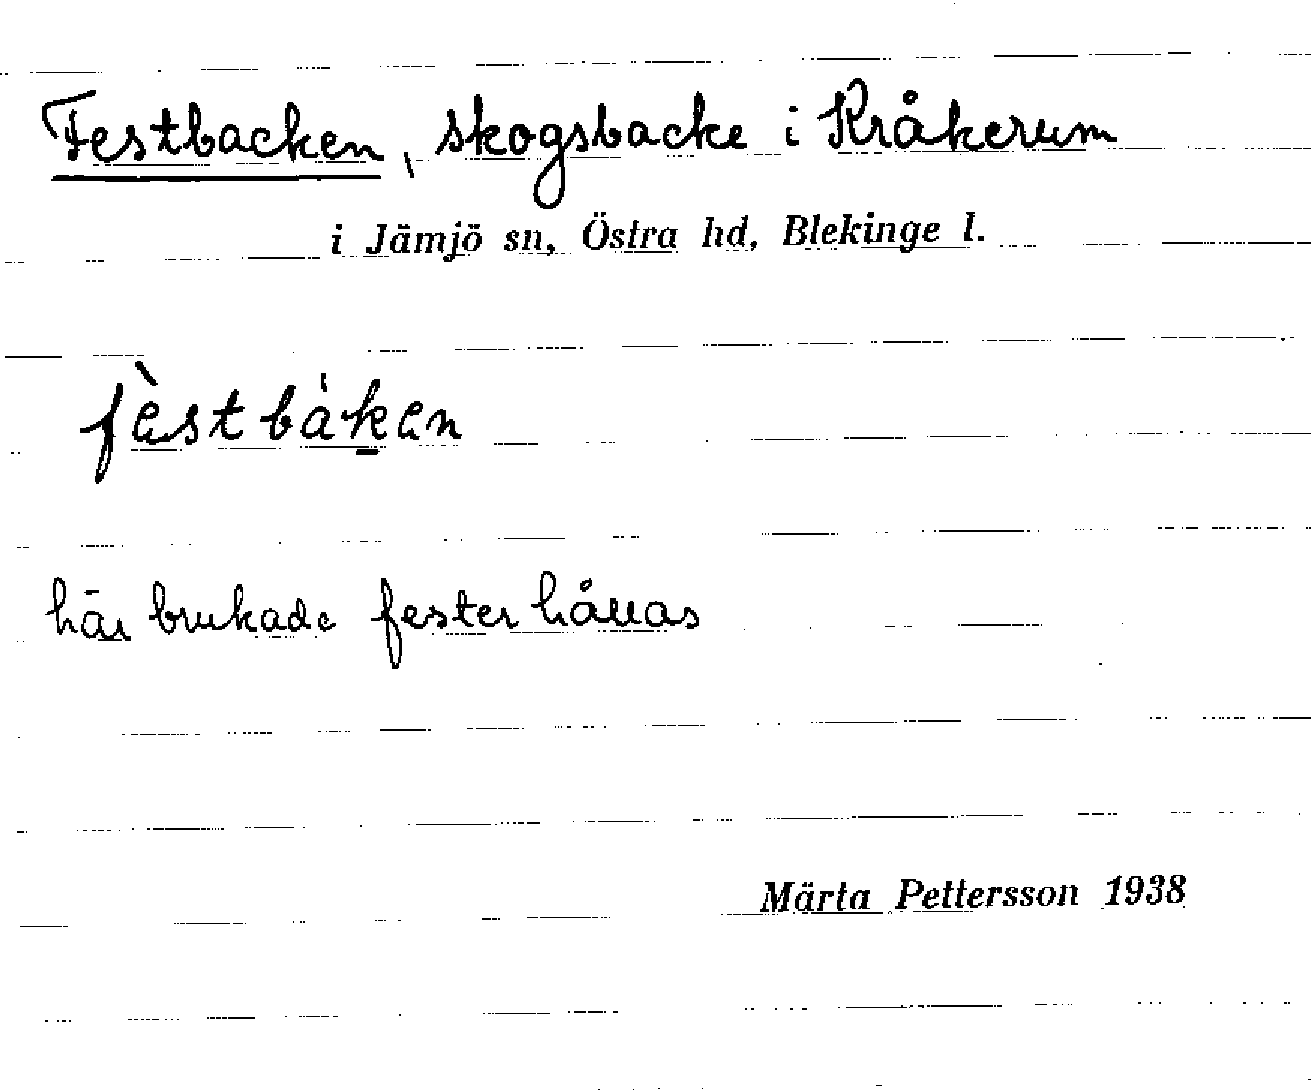 Festbacken, skogsbacke i Kråkerum
i Jämjö sn, Östra hd, Blekinge l.
fèstbáken
här brukade fester hållas
Märta Pettersson 1938